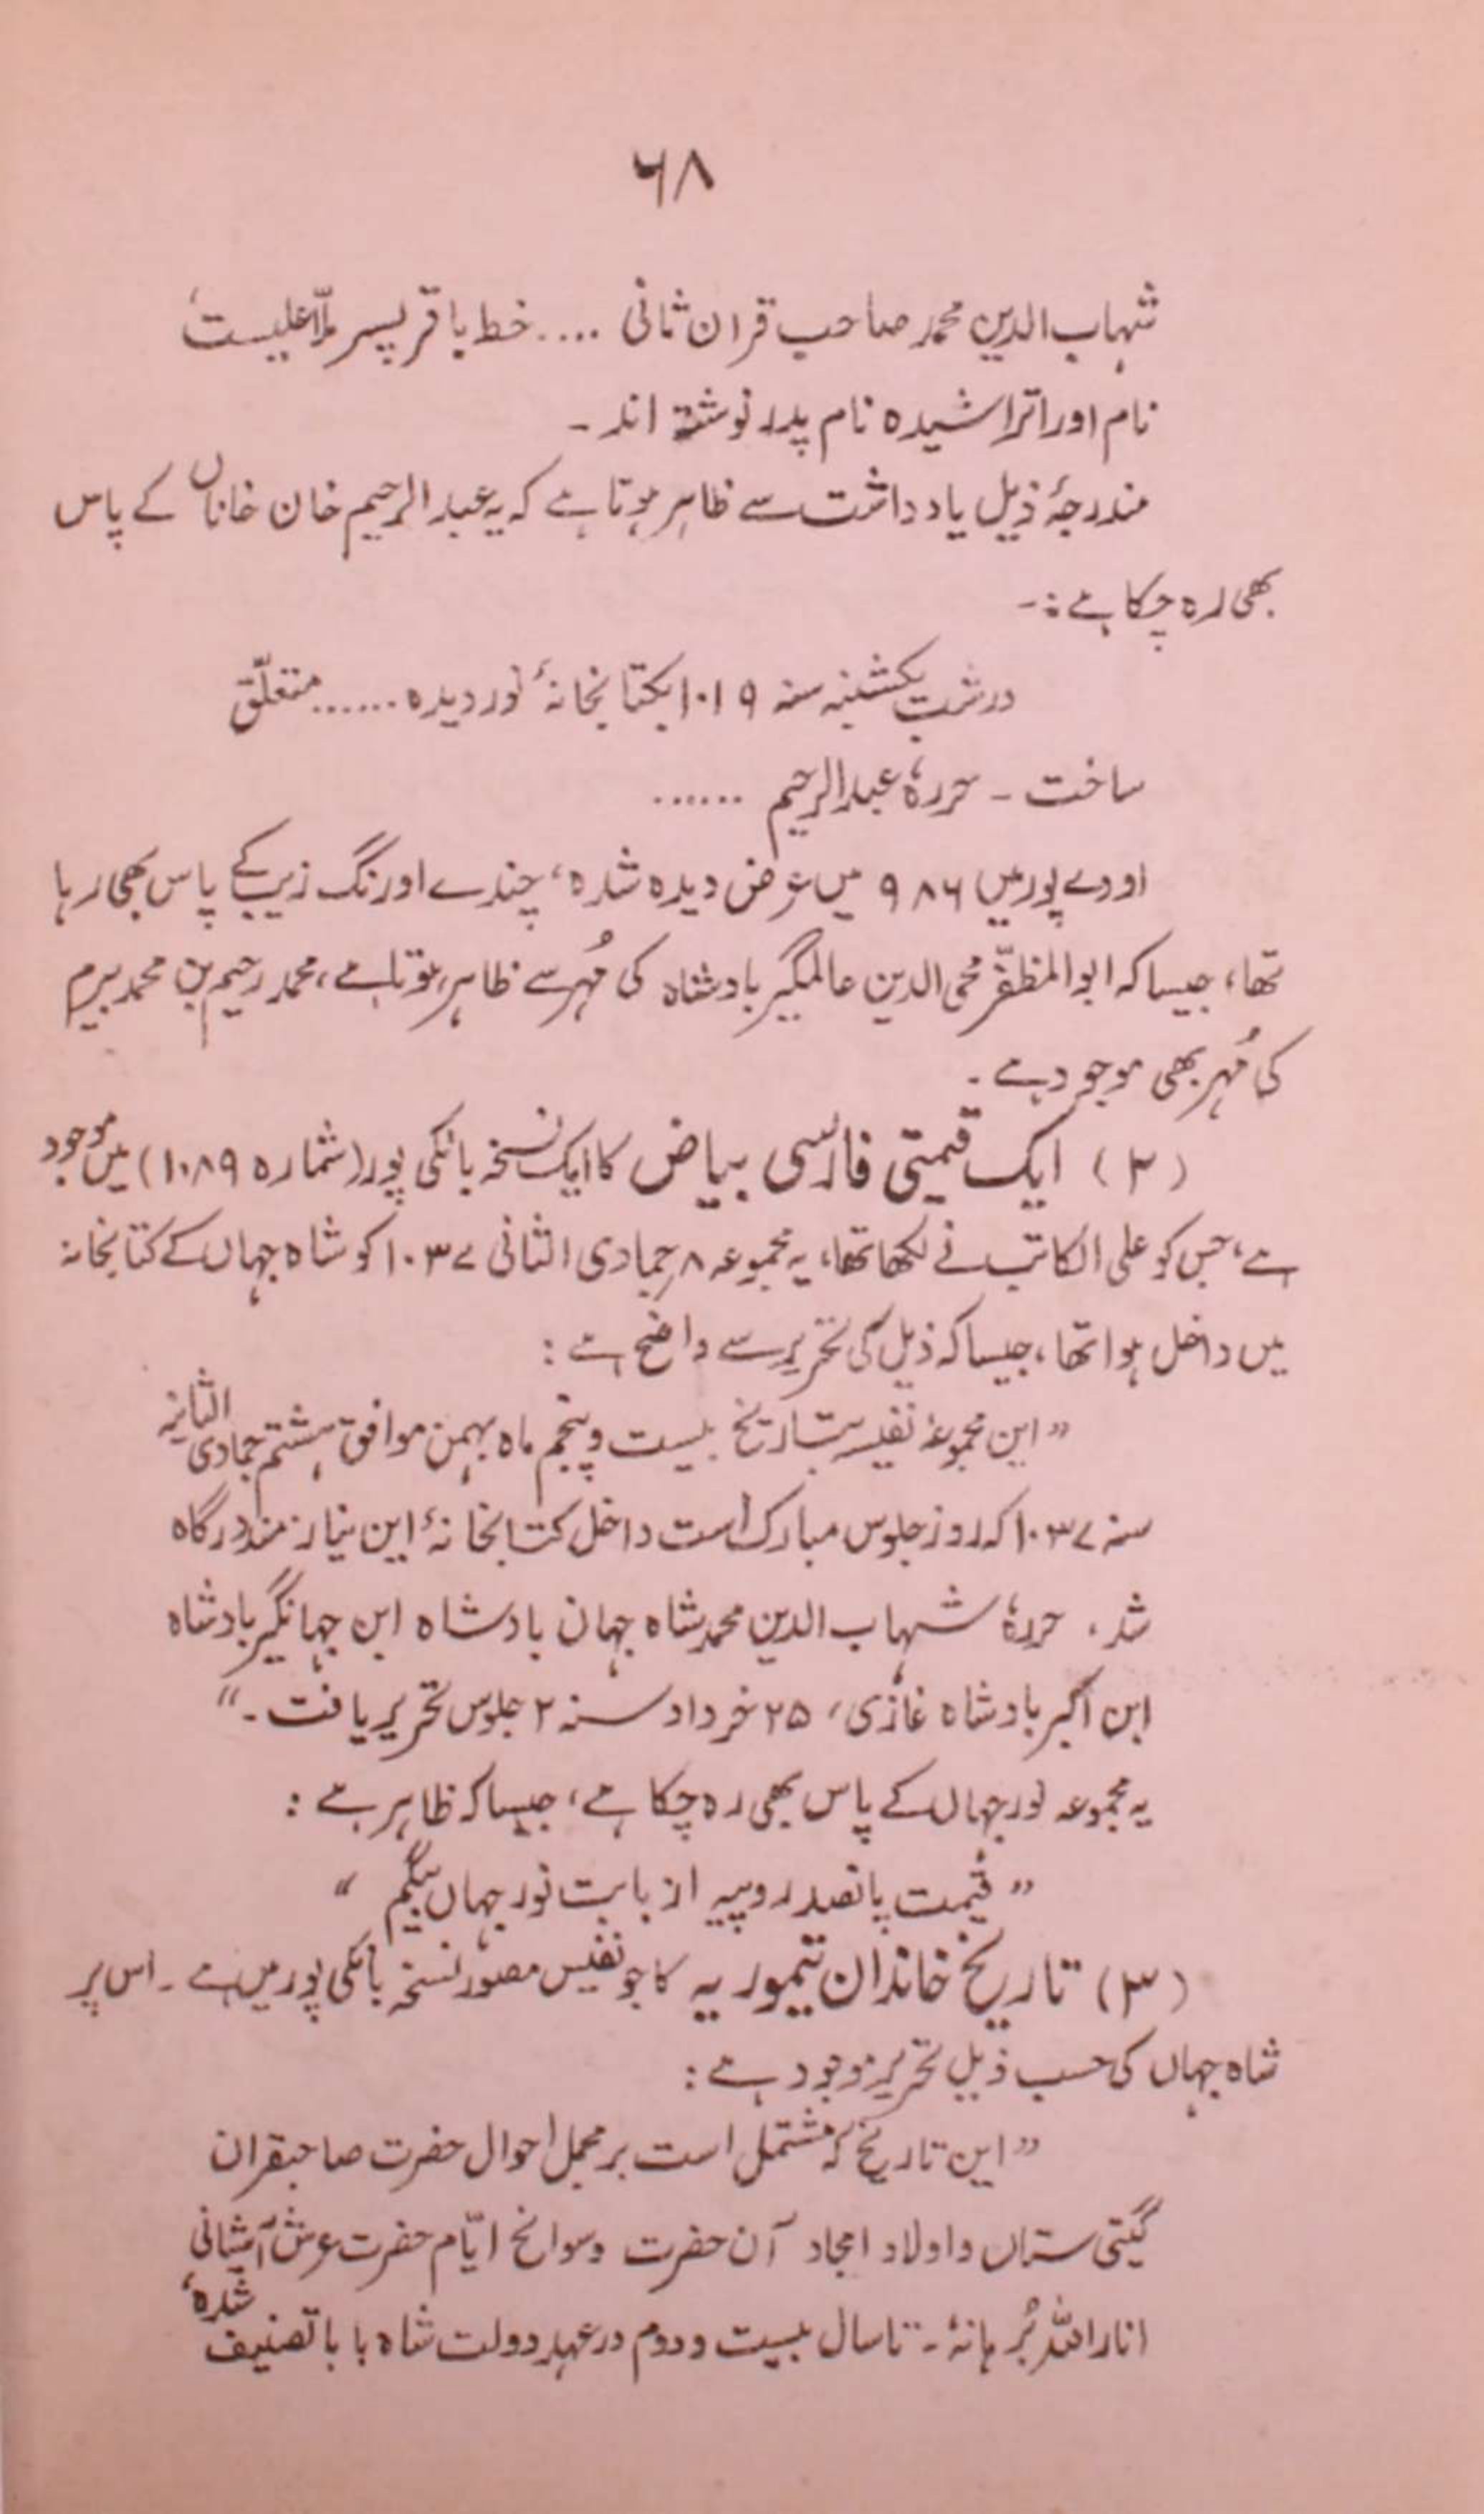 ۶۸
شہاب الدین محمد صاحب قران ثانی ..... خط باقر پسر ملّا علیست،
نام اورا تراشیدہ نام پدر نوشتہ اند ـ
مندرجۂ ذیل یادداشت سے ظاہر ہوتا ہے کہ یہ عبد الرحیم خان خاناں کے پاس
بھی رہ چکا ہے :-
در شب یکشنبہ سنہ ۱۰۱۹ بکتابخانۂ نور دیدہ ...... متعلّق
ساخت ـ حررہٗ عبدالرحیم ......
اودے پور میں ۹۸۶ میں عرض دیدہ شدہ، چندے اورنگ زیب کے پاس بھی رہا
تھا، جیسا کہ ابوالمظفّر محی الدین عالمگیر بادشاہ کی مُہر سے ظاہر ہوتا ہے، محمد رحیم بن محمد بیرم
کی مُہر بھی موجود ہے ۔
(۲) ایک قیمتی فارسی بیاض کا ایک نسخہ بانکی پور (شمارہ ۱۰۸۹) میں موجود
ہے، جس کو علی الکاتب نے لکھا تھا، یہ مجموعہ ۸ جمادی الثانی ۱۰۳۷ کو شاہ جہاں کے کتابخانہ
میں داخل ہوا تھا، جیسا کہ ذیل کی تحریر سے واضح ہے :
"این مجموعۂ نفیسہ بتاریخ بیست و پنجم ماہ بہمن موافق ہشتم جمادی الثانیہ
سنہ ۱۰۳۷ کہ روز جلوس مبارک است داخل کتابخانۂ این نیاز مند درگاہ
شد، حررہٗ شہاب الدین محمد شاہ جہان بادشاہ ابن جہانگیر بادشاہ
ابن اکبر بادشاہ غازی، ۲۵ خرداد سنہ ۲ جلوس تحریر یافت ـ"
یہ مجموعہ نور جہاں کے پاس بھی رہ چکا ہے، جیسا کہ ظاہر ہے :
"قیمت پانصد روپیہ از بابت نور جہاں بیگم"
(۳) تاریخ خاندان تیموریہ کا جو نفیس مصوّر نسخہ بانکی پور میں ہے ـ اس پر
شاہ جہاں کی حسب ذیل تحریر موجود ہے :
"این تاریخ کہ مشتمل است بر مجمل احوال حضرت صاحبقران
گیتی ستاں و اولاد امجاد آن حضرت و سوانح ایّام حضرت عرش آشیانی
انار اللہ بُرہانہٗ ـ تا سال بیست و دوم در عہد دولت شاہ بابا تصنیف شدہ،